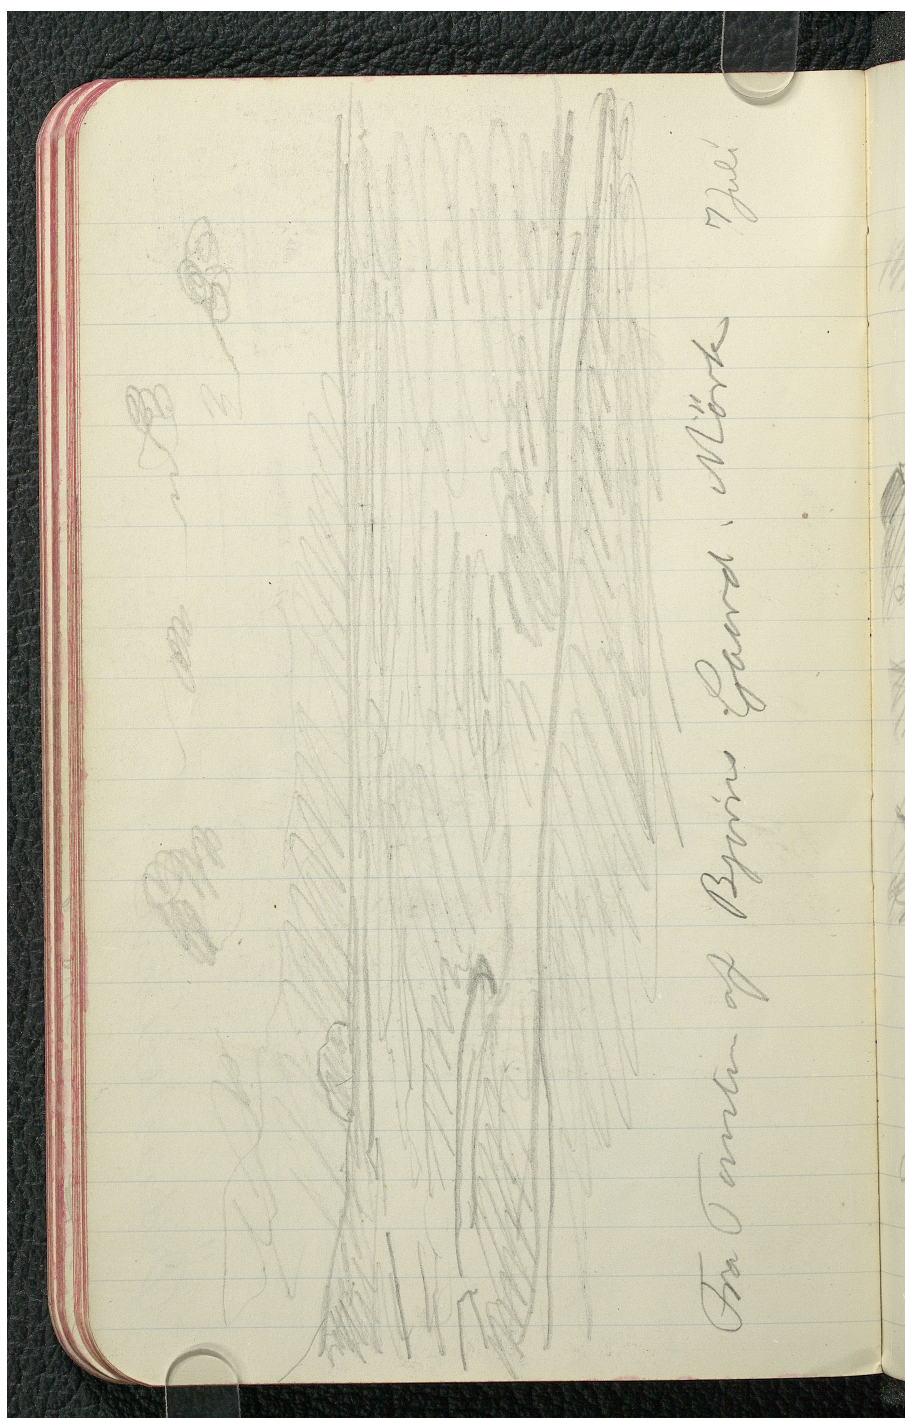 Fra Tomten af Bjørns Gaard i Mörk 7 Juli